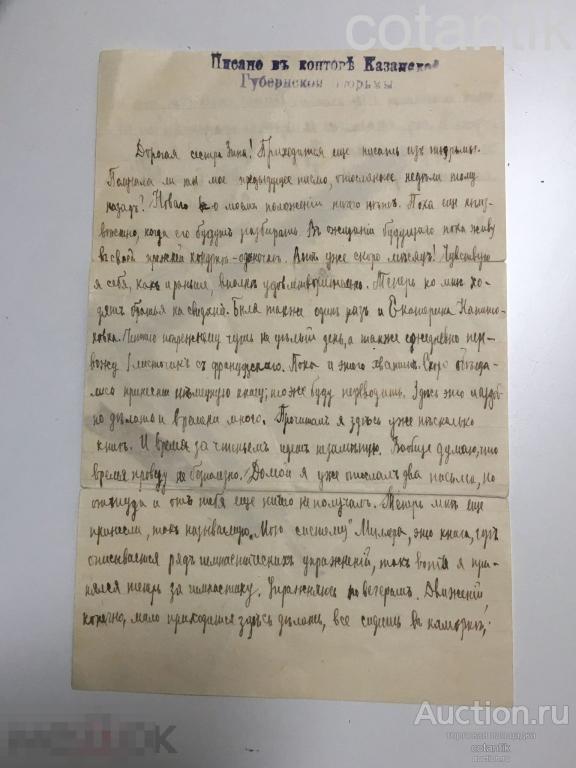 cotantik
Писано въ конторѣ Казанской
Губернской Тюрьмы
Дорогая сестра Зина! Приходится еще писать изъ тюрьмы.
Получала ли ты мое предыдущее письмо, посланное недѣли тому
назадъ? Новаго о моемъ положеніи ничего нѣтъ. Пока еще
когда его будутъ разбирать. Въ ожиданіи будущаго пока живу
въ своей прежней одиночкѣ. Вотъ уже скоро мѣсяцъ! Чувствую
я себя, какъ и раньше, вполнѣ удовлетворительно. Теперь ко мнѣ хо-
дятъ братья на свиданія. Была также одинъ разъ и Екатерина
Читаю попрежнему чуть не цѣлый день, а также ежедневно пер-
вожу 1 листочикъ съ французскаго. Пока и этого хватитъ. Скоро обѣща-
лись принести нѣмецкую книгу; тоже буду переводить. Здѣсь это удоб-
но дѣлать и времени много. Прочиталъ я здѣсь уже нѣсколько
книгъ. И время за чтеньемъ идетъ незамѣтно. Вообще думаю, что
время проведу не безполезно. Домой я уже послалъ два письма, но
оттуда и отъ тебя еще ничего не получалъ. Теперь мнѣ еще
принесли, такъ называемую, "Мою систему" Миллера, это книга, гдѣ
описывается рядъ гимнастическихъ упражненій, такъ вотъ я при-
нялся теперь за гимнастику. Упражняюсь по вечерамъ. Движеній
конечно, мало приходится здѣсь дѣлать, все сидишь въ камеркѣ,
Аукцион.ru
торговая площадка
cotantik
auction.ru